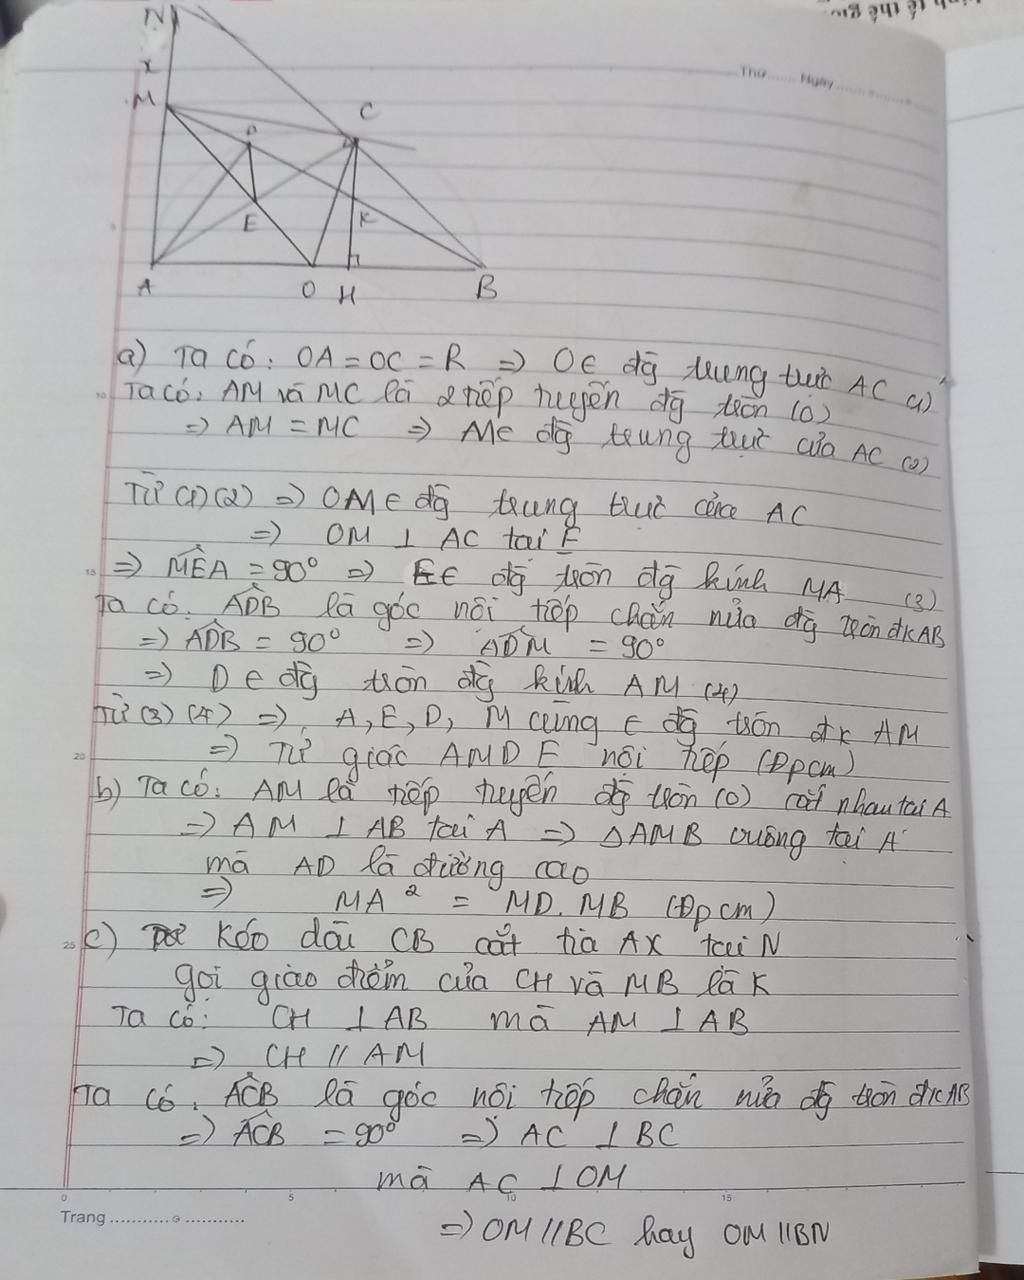 N
Thứ ....... Ngày ...............
x
M
C
D
E
K
A
O
H
B
a) Ta có: OA = OC = R => O ∈ đg trung trực AC (1)
Ta có: AM và MC là 2 tiếp tuyến đg tròn (O)
=> AM = MC => M ∈ đg trung trực của AC (2)
Từ (1) (2) => OM ∈ đg trung trực của AC
=> OM ⊥ AC tại E
=> MÊA = 90° => E ∈ đg tròn đg kính MA (3)
Ta có: ADB là góc nội tiếp chắn nửa đg tròn đk AB
=> ADB = 90° => ADM = 90°
=> D ∈ đg tròn đg kính AM (4)
Từ (3) (4) => A, E, D, M cùng ∈ đg tròn đk AM
=> Tứ giác AMDE nội tiếp (Đpcm)
b) Ta có: AM là tiếp tuyến đg tròn (O) cắt nhau tại A
=> AM ⊥ AB tại A => △AMB vuông tại A
mà AD là đường cao
=> MA² = MD. MB (Đpcm)
c) Kéo dài CB cắt tia AX tại N
gọi giao điểm của CH và MB là K
Ta có: CH ⊥ AB mà AM ⊥ AB
=> CH // AM
Ta có: ACB là góc nội tiếp chắn nửa đg tròn đk AB
=> ACB = 90° => AC ⊥ BC
mà AC ⊥ OM
0 5 10 15
Trang ...................
=> OM // BC hay OM // BN